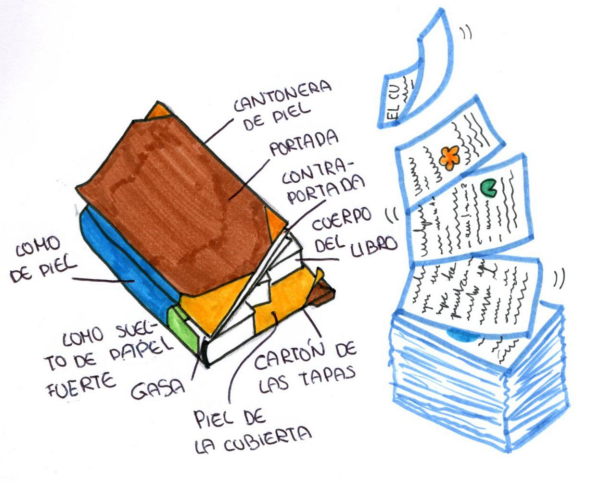 CANTONERA
DE PIEL
PORTADA
CONTRA-
PORTADA
CUERPO
DEL
LIBRO
LOMO
DE PIEL
LOMO SUEL-
TO DE PAPEL
FUERTE
GASA
PIEL DE
LA CUBIERTA
CARTÓN DE
LAS TAPAS
EL CU